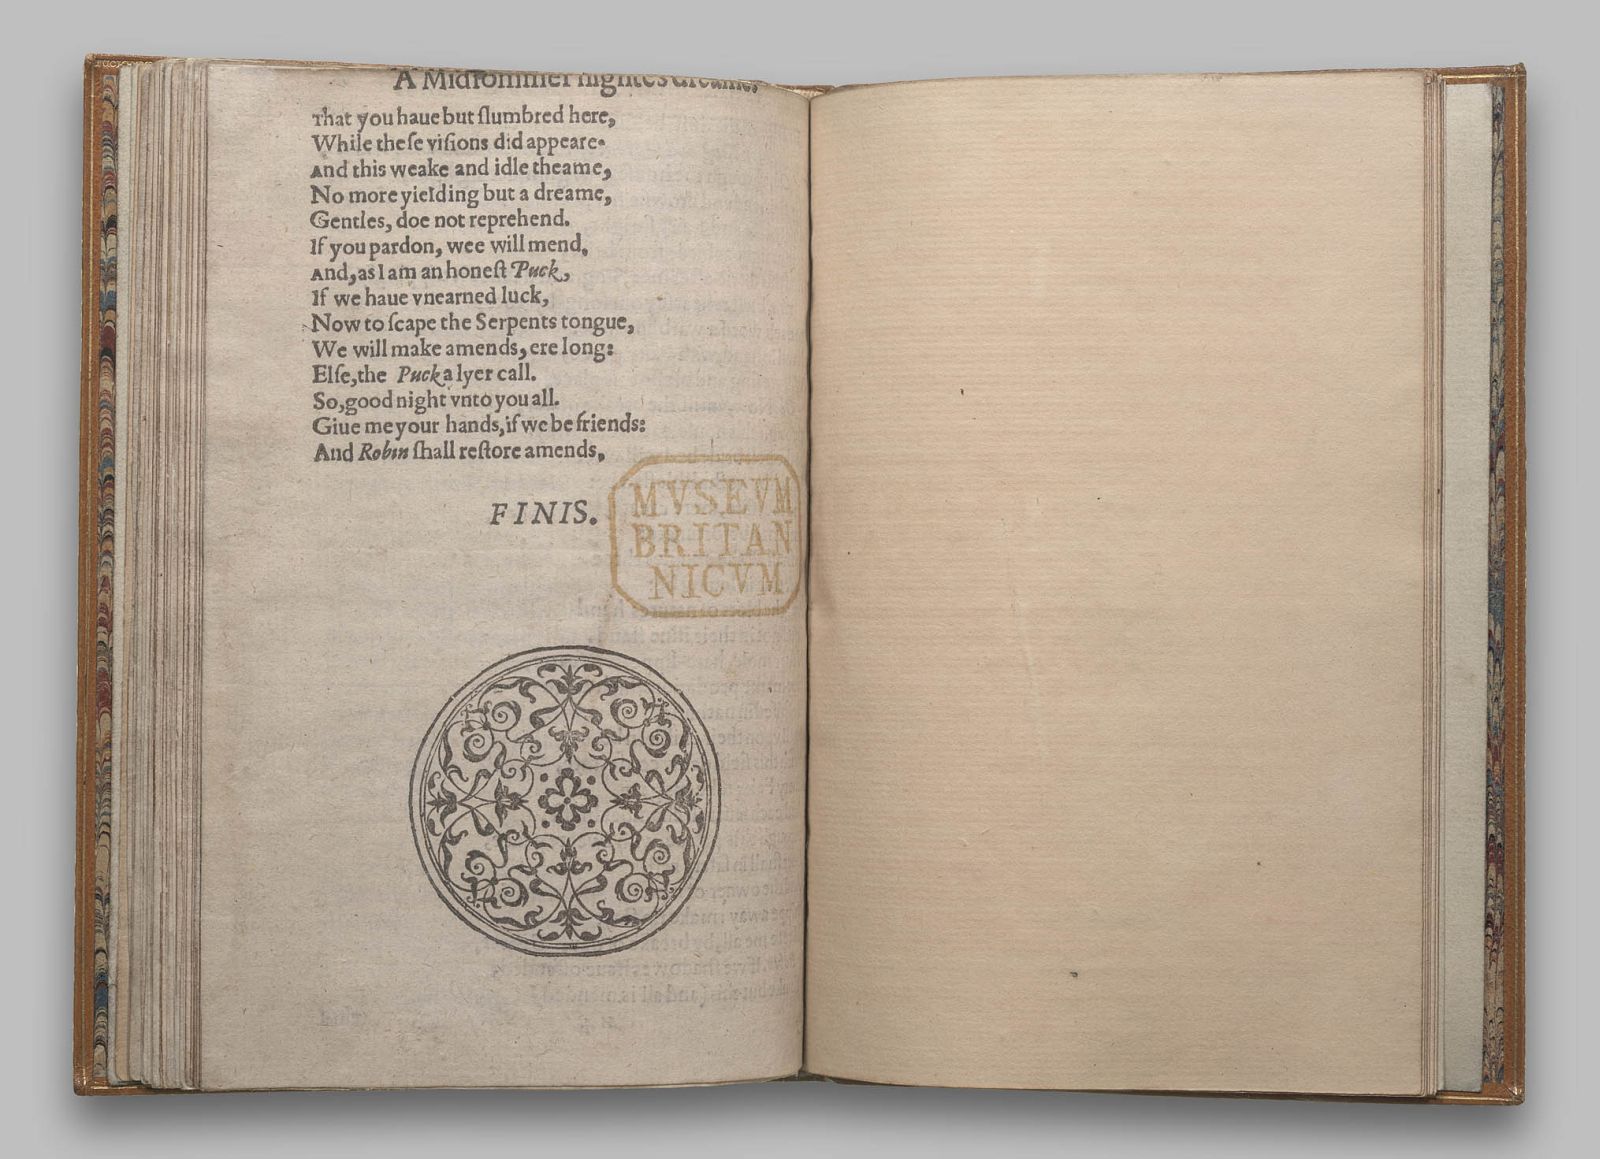 A Midsommer nightes dreame.
That you haue but ſlumbred here,
While theſe viſions did appeare.
And this weake and idle theame,
No more yielding but a dreame,
Gentles, doe not reprehend.
If you pardon, wee will mend.
And, as I am an honeſt Puck,
If we haue vnearned luck,
Now to ſcape the Serpents tongue,
We will make amends, ere long:
Elſe, the Puck a lyer call.
So, good night vnto you all.
Giue me your hands, if we be friends:
And Robin ſhall reſtore amends.
FINIS.
MVSEVM
BRITAN
NICVM